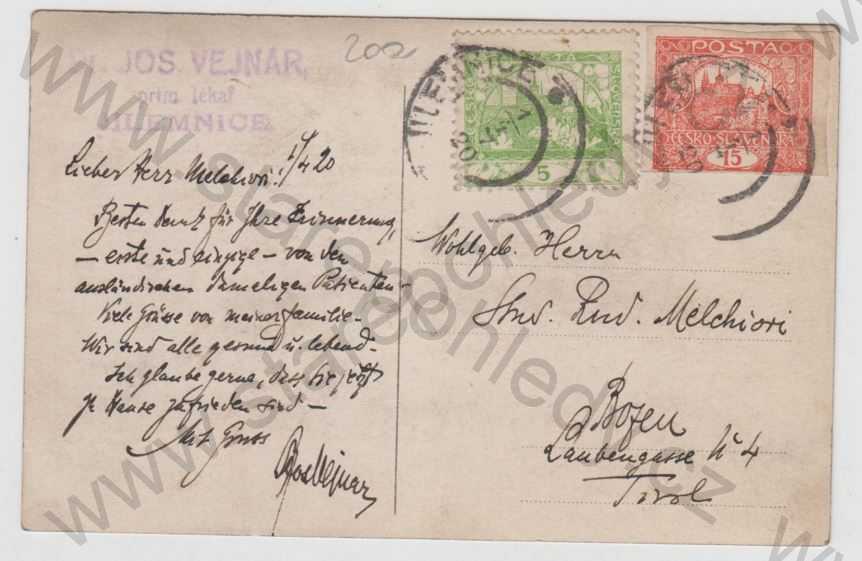 Dr. JOS. VEJNAR,
prim. lékař
JILEMNICE
202
1/4 20
Lieber Herr Melchiori!
Besten Dank für Ihre Erinnerung,
— erste und einzige — von den
ausländischen damaligen Patienten.
Viele Grüsse von meiner Familie.
Wir sind alle gesund u. lebend.
Ich glaube gerne, dass Sie jetzt
zu Hause zufrieden sind —
Mit Gruss
Jos Vejnar
JILEMNICE
5
JILEM
POSTA
ČESKO-SLOVENSKÁ
15
Wohlgeb. Herrn
Stud. Rud. Melchiori
Bozen
Laubengasse № 4
Tirol
www.starepohledy.cz